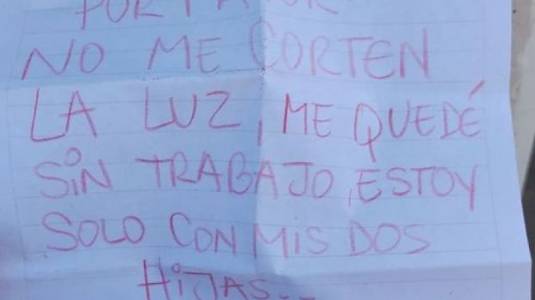 POR FAVOR
NO ME CORTEN
LA LUZ, ME QUEDÉ
SIN TRABAJO, ESTOY
SOLO CON MIS DOS
HIJAS...